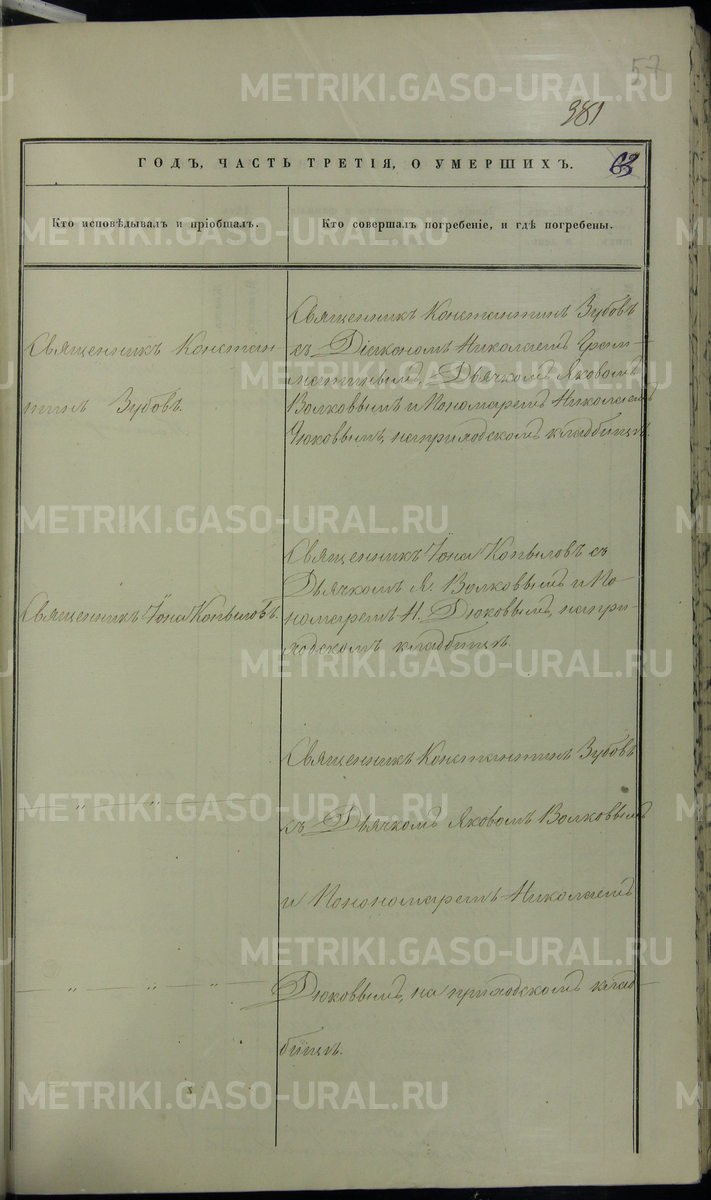 57
381
ГОДЪ, ЧАСТЬ ТРЕТІЯ, О УМЕРШИХЪ.
Кто исповѣдывалъ и пріобщалъ.
Кто совершалъ погребеніе, и гдѣ погребены.
Священникъ Констан
тинъ Зубовъ.
Священникъ Константинъ Зубовъ
съ Діакономъ Николаемъ
Дьячкомъ Яковомъ
Волковымъ и Пономаремъ Николаемъ
Дюковымъ, на приходскомъ кладбищѣ.
Священникъ Іона Копыловъ.
Священникъ Іона Копыловъ съ
Дьячкомъ Я. Волковымъ и По-
номаремъ Н. Дюковымъ, на при-
ходскомъ кладбищѣ.
— „ — „ —
Священникъ Константинъ Зубовъ
съ Дьячкомъ Яковомъ Волковымъ
и Понономаремъ Николаемъ
— „ — „ — „ —
Дюковымъ, на приходскомъ клад-
бищѣ.
METRIKI.GASO-URAL.RU
METRIKI.GASO-URAL.RU
METRIKI.GASO-URAL.RU
METRIKI.GASO-URAL.RU
METRIKI.GASO-URAL.RU
METRIKI.GASO-URAL.RU
METRIKI.GASO-URAL.RU
METRIKI.GASO-URAL.RU